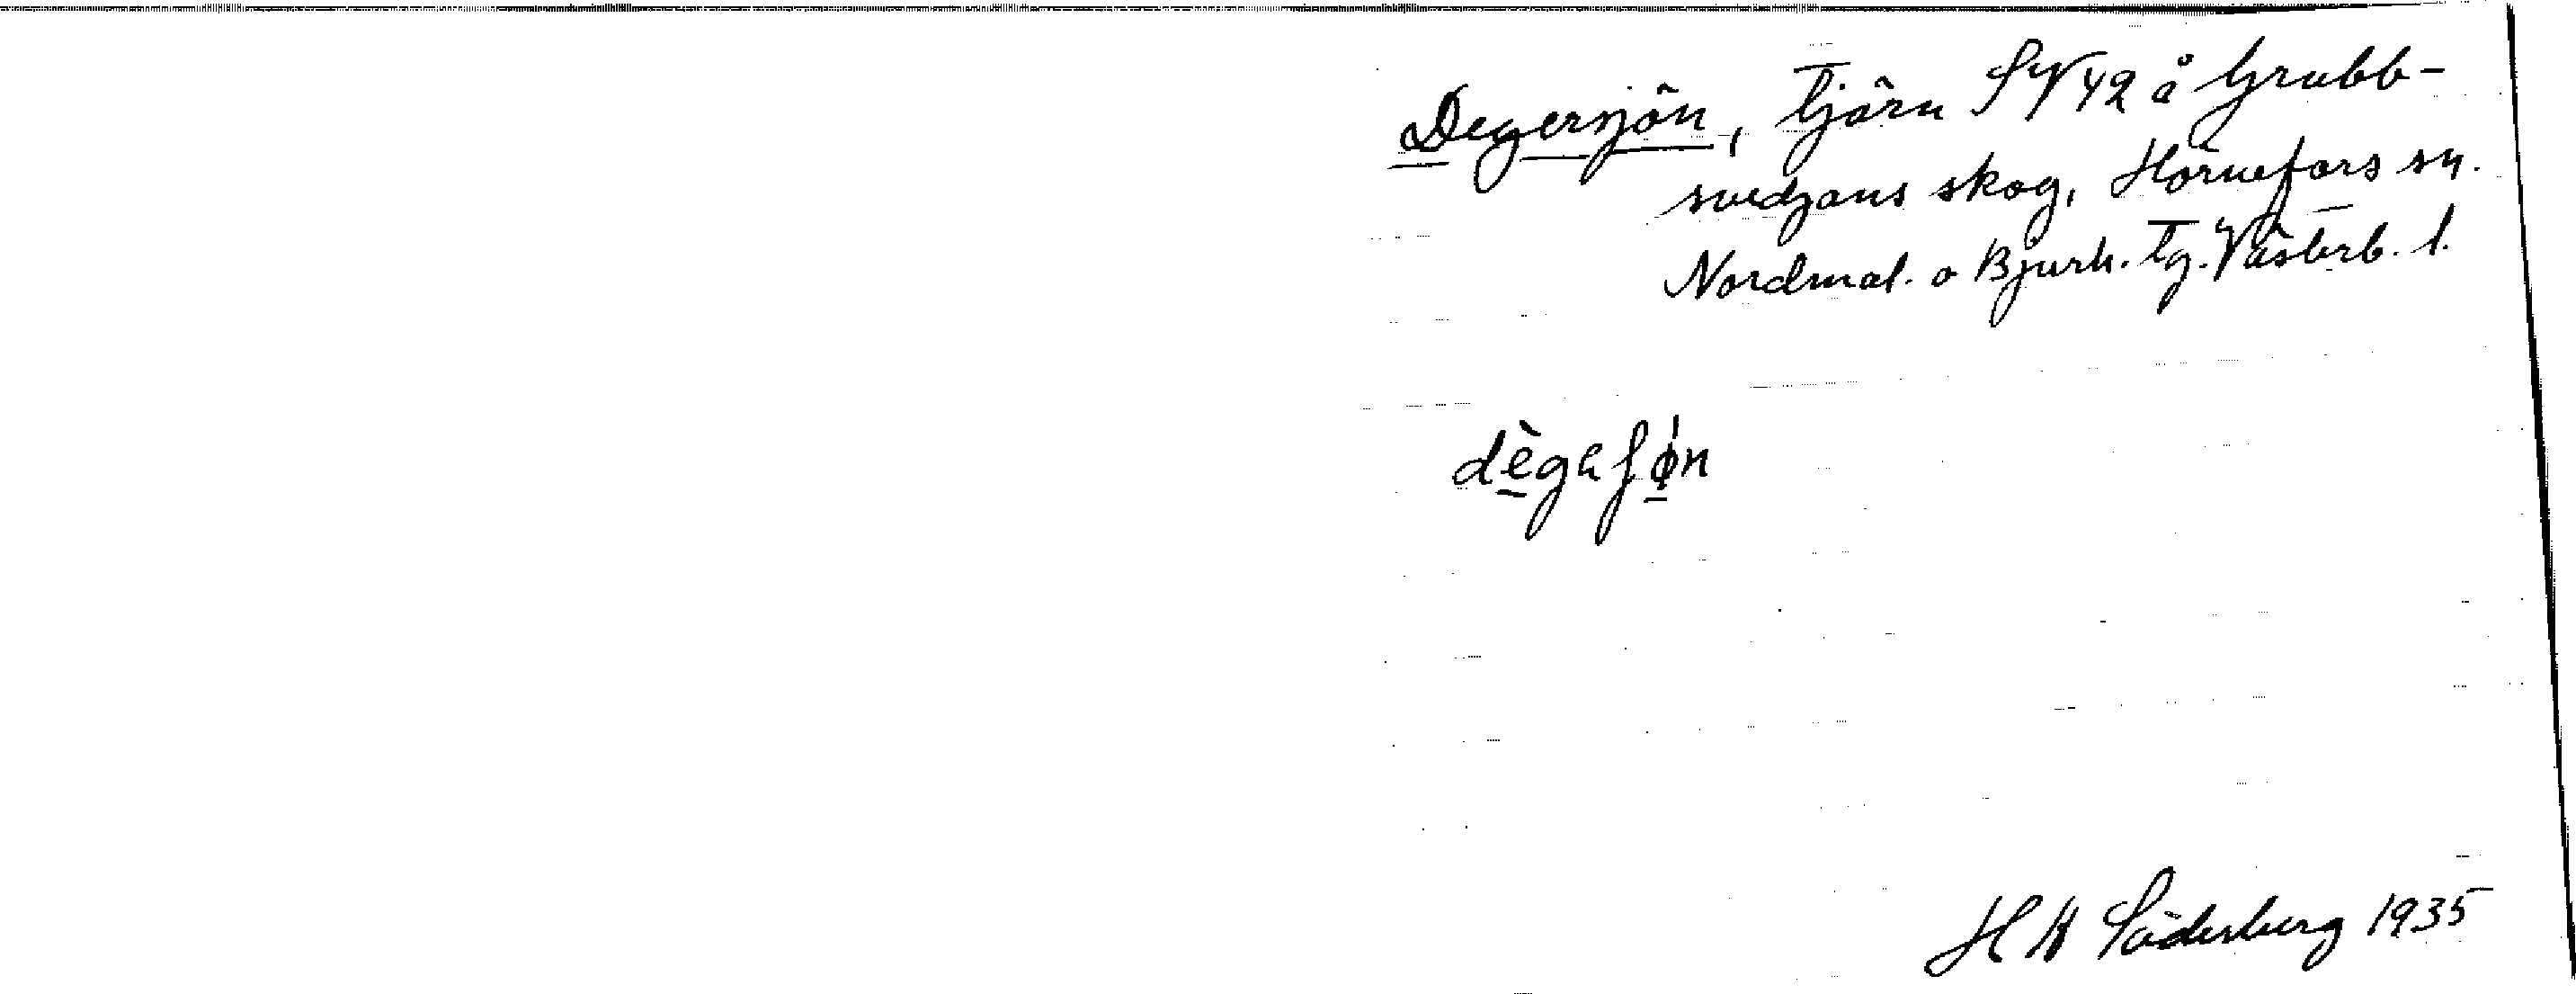 Degersjön, Tjärn SV 42 å Grubb-
svedjans skog, Hörnefors sn.
Nordmal. o Bjurh. Tg. Västerb. l.
dègaʃø̀n
H H Söderberg 1935